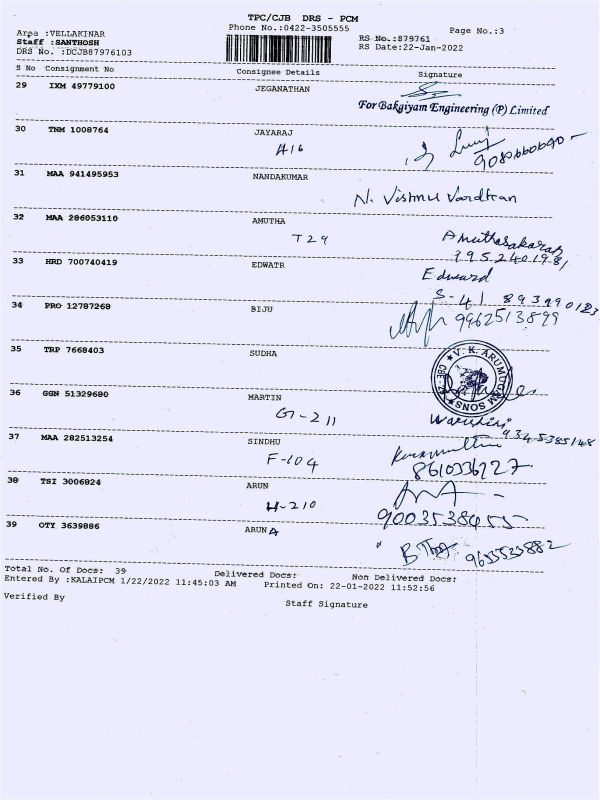 TPC/CJB DRS - PCM
Phone No.:0422-3505555
Page No.:3
Area :VELLAKINAR
Staff :SANTHOSH
DRS No. :DCJB87976103
RS No.:879761
RS Date:22-Jan-2022
S No Consignment No Consignee Details Signature
29 IXM 49779100 JEGANATHAN
For Bakgiyam Engineering (P) Limited
30 TNM 1008764 JAYARAJ
A16
31 MAA 941495953 NANDAKUMAR
N. Vishnu Vardhan
32 MAA 286053110 AMUTHA
T29
Amuthasakaran
9952401981
33 HRD 700740419 EDWATR
Edward
34 PRO 12787268 BIJU
9962513899
35 TRP 7668403 SUDHA
V.K. ARUMUGAM SONS
36 GGN 51329680 MARTIN
G1-211
37 MAA 282513254 SINDHU
F-104
8610336227.
38 TSI 3006824 ARUN
H-210
39 OTY 3639886 ARUNA
9655533882
Total No. Of Docs: 39 Delivered Docs: Non Delivered Docs:
Entered By :KALAIPCM 1/22/2022 11:45:03 AM Printed On: 22-01-2022 11:52:56
Verified By
Staff Signature